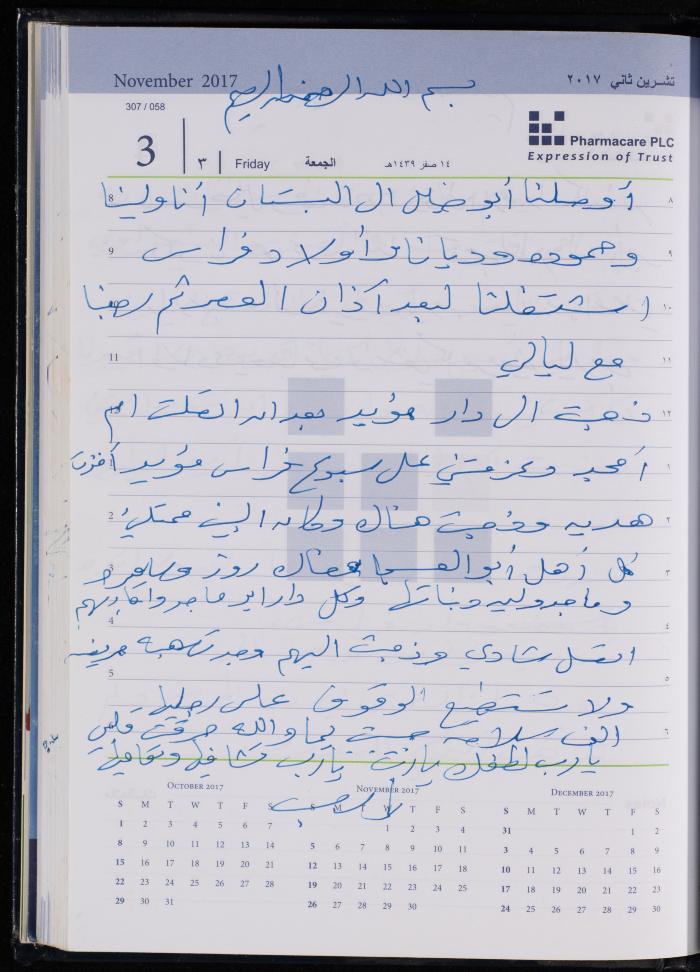 November 2017
تشرين ثاني ٢٠١٧
بسم الله الرحمن الرحيم
307 / 058
3
٣
Friday
الجمعة
١٤ صفر ١٤٣٩هـ
Pharmacare PLC
Expression of Trust
أوصلنا أبو ال البستان أنا ولينا
وحموده وديانا وأولاد فراس
اشتغلنا لبعد آذان العصر ثم رحنا
مع ليالي
ذهبت الى دار مؤيد بعد ان اتصلت ام
أمجد وعزمتني على سبوع فراس مؤيد أخذت
هديه وذهبت هناك وكان البيت ممتلئ
كل أهل أبو هناك روز
وماجدوليه وبناتها وكل دار ابو ماجد
اتصل شادي وذهبت اليهم وجدت مريضه
ولا تستطيع الوقوف على رجليها
الف سلامة يما والله حرقت قلبي
يارب لطفك يارب يارب تشافيها وتعافيها
يارب
8
9
11
2
3
4
5
٨
٩
١٠
١١
١٢
١
٢
٣
٤
٥
٦
October 2017
S M T W T F S
1 2 3 4 5 6 7
8 9 10 11 12 13 14
15 16 17 18 19 20 21
22 23 24 25 26 27 28
29 30 31
November 2017
S M T W T F S
1 2 3 4
5 6 7 8 9 10 11
12 13 14 15 16 17 18
19 20 21 22 23 24 25
26 27 28 29 30
December 2017
S M T W T F S
31 1 2
3 4 5 6 7 8 9
10 11 12 13 14 15 16
17 18 19 20 21 22 23
24 25 26 27 28 29 30